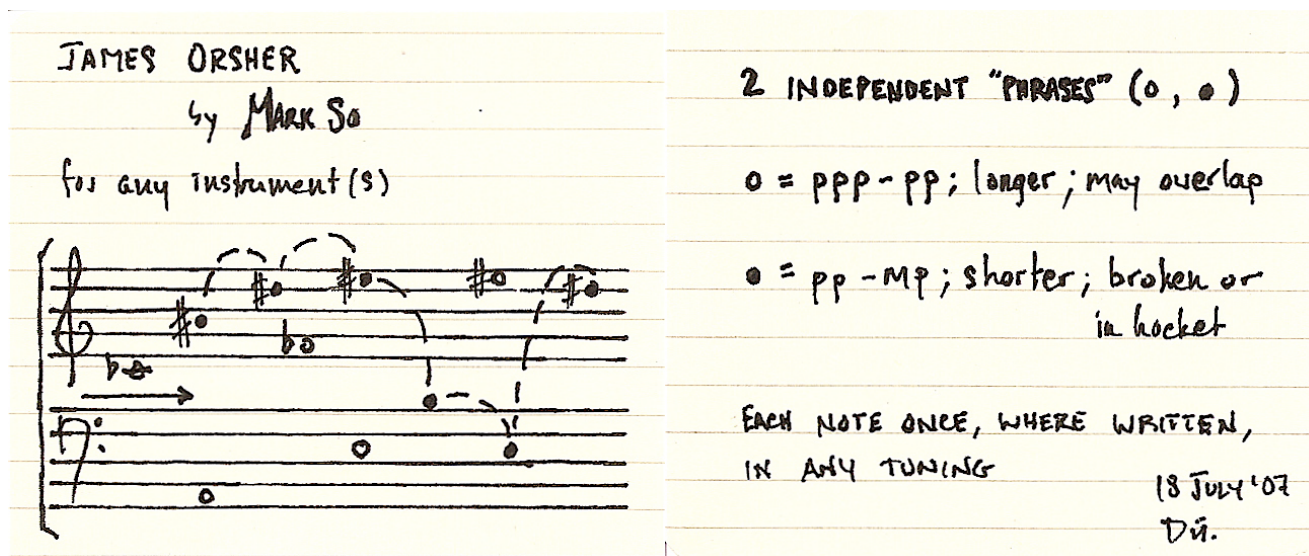 JAMES ORSHER
by MARK SO
for any instrument(s)
2 INDEPENDENT "PHRASES" (o, •)
o = ppp - pp; longer; may overlap
• = pp - mp; shorter; broken or
in hocket
EACH NOTE ONCE, WHERE WRITTEN,
IN ANY TUNING
18 JULY '07
Dü.